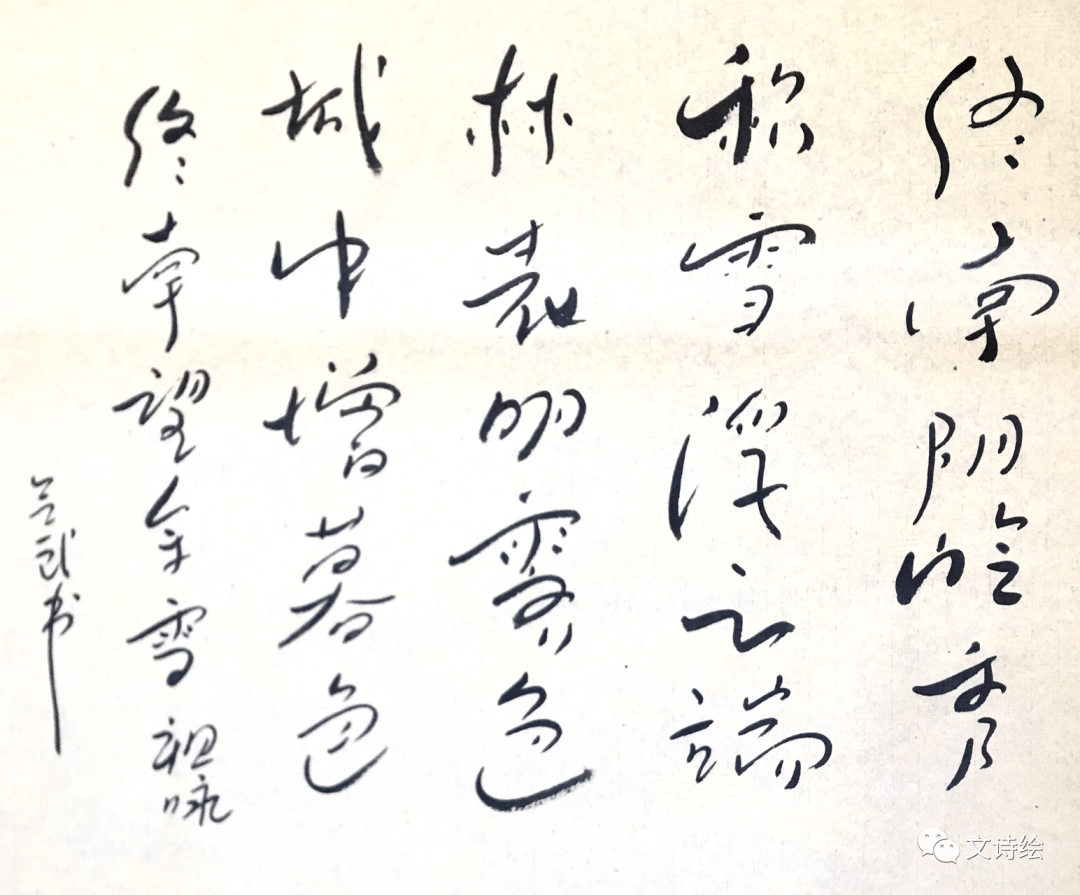 终南阴岭秀
积雪浮云端
林表明霁色
城中增暮色
终南望余雪 祖咏
书
文诗绘